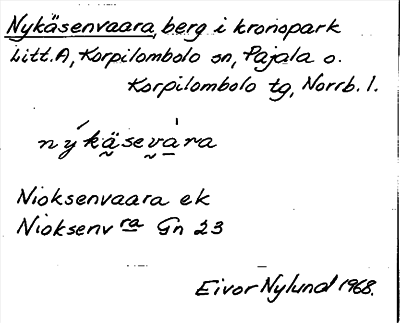 Nykäsenvaara, berg i kronopark
Litt. A, Korpilombolo sn, Pajala o.
Korpilombolo tg, Norrb. l.
nýkäsevàra
Nioksenvaara ek
Nioksenv ra Gn 23
Eivor Nylund 1968.